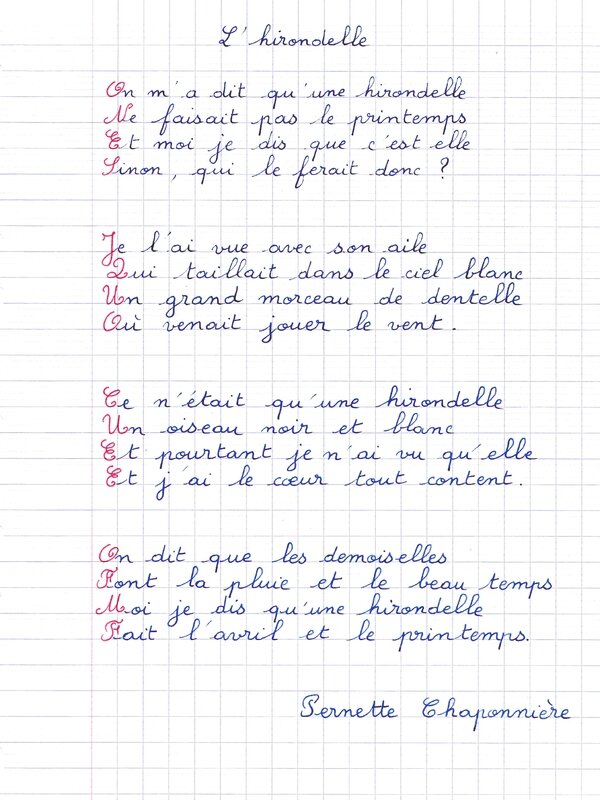 L'hirondelle
On m'a dit qu'une hirondelle
Ne faisait pas le printemps
Et moi je dis que c'est elle
Sinon, qui le ferait donc ?
Je l'ai vue avec son aile
Qui taillait dans le ciel blanc
Un grand morceau de dentelle
Où venait jouer le vent.
Ce n'était qu'une hirondelle
Un oiseau noir et blanc
Et pourtant je n'ai vu qu'elle
Et j'ai le cœur tout content.
On dit que les demoiselles
Font la pluie et le beau temps
Moi je dis qu'une hirondelle
Fait l'avril et le printemps.
Pernette Chaponnière